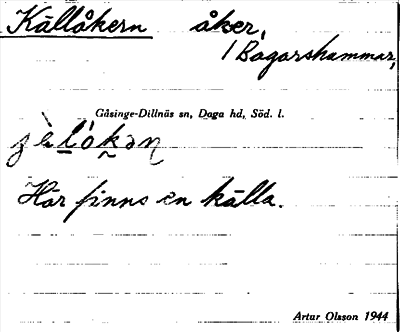 Källåkern åker,
/ Bagarshammar,
Gåsinge-Dillnäs sn, Daga hd, Söd. l.
Här finns en källa.
Artur Olsson 1944